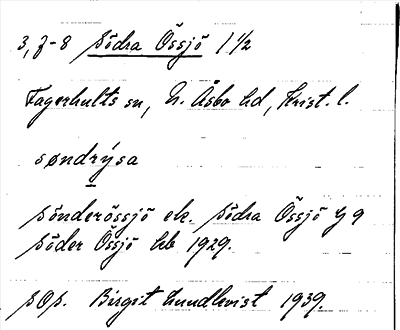 3,7-8 Södra Össjö 1 1/2
Fagerhults sn, N. Åsbo hd, Krist. l.
søndrýsa
Sönderössjö ek. Södra Össjö G 9
Söder Össjö hb 1929.
SOp. Birgit Lundkvist 1939.